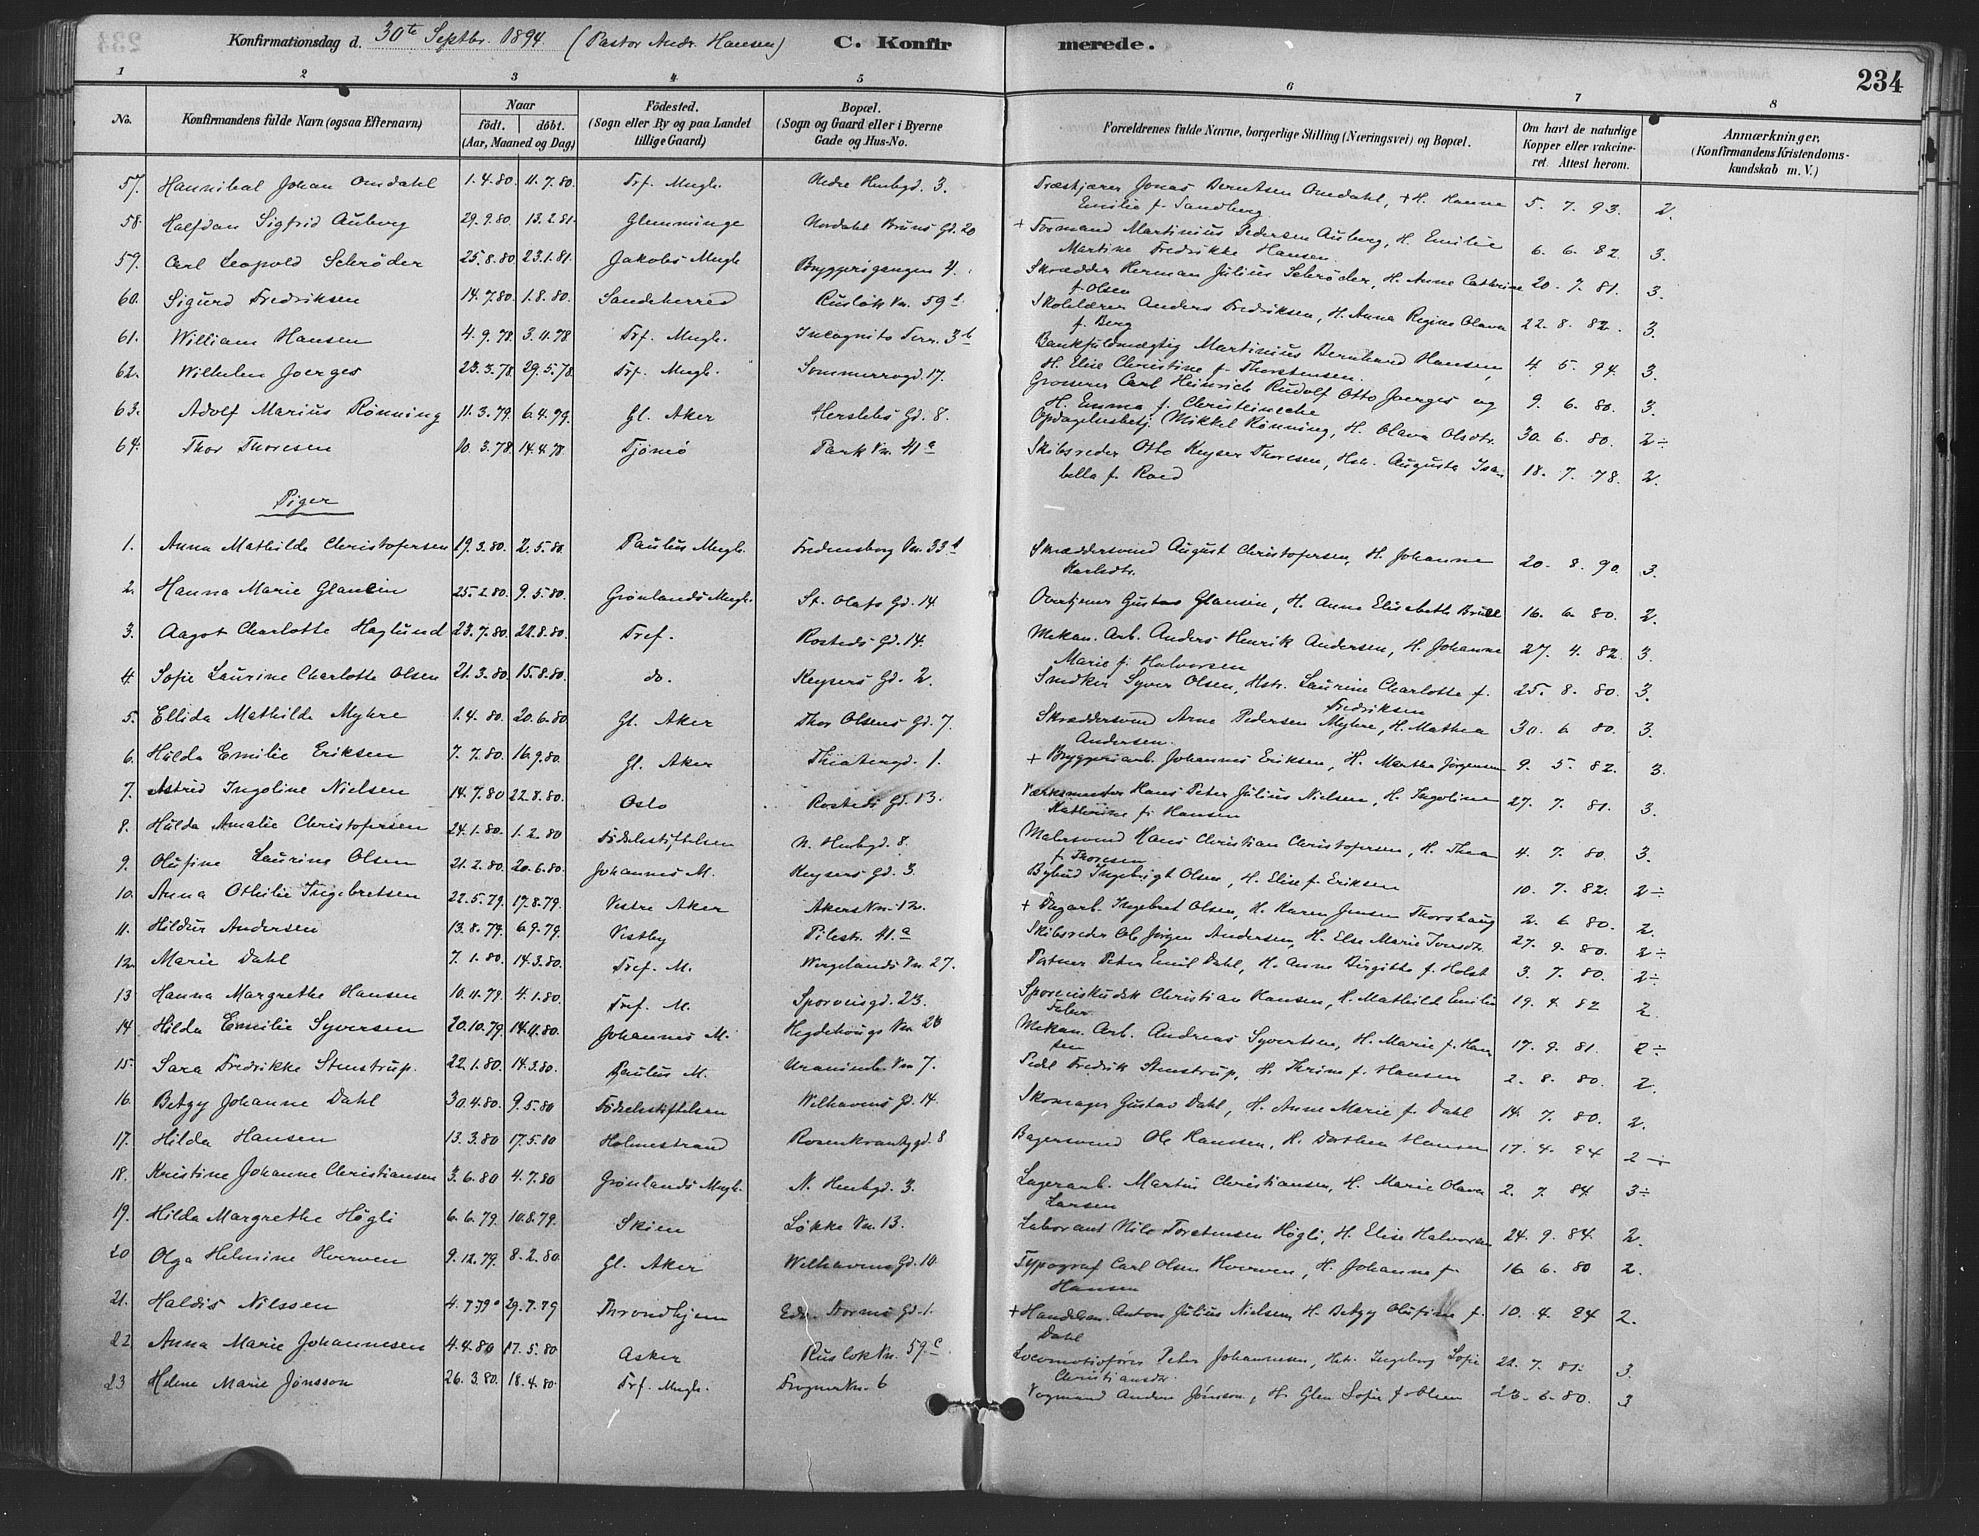 Konfirmationsdag d. 30te Septbr. 1894 (Pastor Andr. Hansen) C. Konfirmerede. 234
1 2 3 4 5 6 7 8
No. Konfirmandens fulde Navn (ogsaa Efternavn) Naar födt. döbt. (Aar, Maaned og Dag) Födested. (Sogn eller By og paa Landet tillige Gaard) Bopæl. (Sogn og Gaard eller i Byerne Gade og Hus-No. Forældrenes fulde Navne, borgerlige Stilling (Næringsvei) og Bopæl. Om havt de naturlige Kopper eller vakcineret. Attest herom. Anmærkninger. (Konfirmandens Kristendomskundskab m. V.)
57. Hannibal Johan Omdahl 1.4.80. 11.7.80. Trf. Mngh. Andre Husbygd. 3. Jonas Berntsen Omdahl, + H. Hanne Emilie f. Sandberg 5. 7. 93. 2.
58. Halfdan Sigfrid Auberg 29.9.80. 13.2.81. Glemminge Nordahl Bruns Gd. 20 + Formand Martinius Pedersen Auberg, H. Emilie Martine Fredrikke Hansen. 6. 6. 82. 3.
59. Carl Leopold Schrøder 25.8.80 23.1.81. Jakobs Mngh. Bryggerigangen 4. Skrædder Herman Julius Schrøder, H. Anne Cathrine f. Olsen 20. 7. 81. 3.
60. Sigurd Fredriksen 14.7.80. 1.8.80. Sandeherred Rusløk Vn. 59 Skolelærer Anders Fredriksen, H. Anna Regine Olava f. Berg 22. 8. 82. 3.
61. William Hansen 4.9.78. 3.11.78 Trf. Mngh. Incognito Terr. 3b Bankfuldmægtig Martinius Bernhard Hansen, H. Elise Christine f. Thorstensen. 4. 5. 94. 3.
62. Wilhelm Joerges 23.3.78. 29.5.78. Trf. Mngh. Sommerrogd. 17. Grosserer Carl Heinrich Rudolf Otto Joerges og H. Emma f. 9. 6. 80. 3.
63. Adolf Marius Rønning 11.3.79. 6.4.79. Gl. Aker Herslebs Gd. 8. Opdagelsesbetj. Mikkel Rønning, H. Olava Olsdtr. 30. 6. 80. 2÷
64. Thor Thoresen 10.3.78. 14.4.78 Tjömö Park Vn. 41a Skibsreder Otto Keyser Thoresen, Hstr. Augusta Isabella f. Roed 18. 7. 78. 2.
Piger
1. Anna Mathilde Christofersen 19.3.80. 2.5.80. Paulus Mngh. Fredensborg Vn. 33 Skræddersvend August Christofersen, H. Johanne Karlsdtr. 20. 8. 90. 3.
2. Hanna Marie Glansin 25.2.80. 9.5.80. Grønlands Mngh. St. Olafs Gd. 14. Overtjener Gustav Glansin, H. Anne Elisabeth 16. 6. 80. 2.
3. Aagot Charlotte Haglund 23.7.80. 22.8.80. Tref. Rosteds Gd. 14. Mekan. Arb. Anders Henrik Andersen, H. Johanne Marie f. Halvorsen 27. 4. 82. 3.
4. Sofie Laurine Charlotte Olsen 21.3.80. 15.8.80. do. Keysers Gd. 2. Snedker Syver Olsen, Hstr. Laurine Charlotte f. Fredriksen 25. 8. 80. 3.
5. Ellida Mathilde Myhre 1.4.80. 20.6.80 Gl. Aker Thor Olsens Gd. 7. Skræddersvend Arne Pedersen Myhre, H. Mathea Andersen. 30. 6 80. 3.
6. Hilda Emilie Eriksen 7.7.80. 16.9.80. Gl. Aker Theatergd. 1. + Bryggeriarb. Johannes Eriksen, H. Marthe Jørgensen 9. 5. 82. 3.
7. Astrid Ingoline Nielsen 14.7.80 22.8.80. Oslo Rosteds Gd. 13. Værksmester Hans Peter Julius Nielsen, H. Ingoline Kathrine f. Hansen 27. 7. 81. 3.
8. Hulda Amalie Christofersen 24.1.80. 1.2.80 Födselsstiftelsen N. Husbgd. 8. Malersvend Hans Christian Christofersen, H. Thea f. Thoresen 4. 7. 80. 3.
9. Olufine Laurine Olsen 21.2.80. 20.6.80. Johannes M. Keysers Gd. 3. Bybud Ingebrigt Olsen, H. Elise f. Eriksen 10. 7. 82. 2÷
10. Anna Othilie Ingebretsen 22.5.79. 17.8.79. Vestre Aker Akers Vn. 12. + Dagarb. Ingebret Olsen, H. Karen Jensen Thorshaug 2. 6 80. 2.
11. Hildur Andersen 13.8.79. 6.9.79. Vestby Pilestr. 41.a Skibsreder Ole Jörgen Andersen, H. Else Marie 27. 9. 80. 2÷
12. Marie Dahl 7.1.80. 14.3.80. Tref. M. Wergelands Vn. 27. Peter Emil Dahl, H. Anne Birgitte f. Holst 3. 7. 80. 2÷
13 Hanna Margrethe Hansen 10.11.79. 4.1.80. Tref. M. Sporveisgd. 23. Sporveiskudsk Christian Hansen, H. Mathilde Emilie 19. 4. 82 2.
14. Hilda Emilie Syversen 20.10.79. 14.11.80. Johannes M. Hegdehougs Vn 28 Mekan. Arb. Andreas Syvertsen, H. Marie f. Hansen 17. 9. 81. 2÷
15. Sara Fredrikke Stenstrup. 22.1.80. 14.3.80. Paulus M. Uranienb. Vn 7. Pedel Fredrik Stenstrup, H. Thrine f. Hansen 2. 8. 80. 2.
16. Betzy Johanne Dahl 30.4.80. 9.5.80 Födselsstiftelsen Welhavens Gd. 14. Skomager Gustav Dahl, H. Anne Marie f. Dahl 14. 7. 80. 2.
17. Hilda Hansen 13.3.80 17.5.80 Holmestrand Rosenkrantzgd. 8 Bagersvend Ole Hanssen, H. Dorthea Hansen 17. 4. 84 2÷
18. Kristine Johanne Christiansen 3.6.80 4.7.80 Grönlands Mngh. N. Husbgd. 3. Lagerarb. Martin Christiansen, H. Marie Olava Larsen 2. 7. 84 3÷
19. Hilda Margrethe Högli 6.6.79. 10.8.79. Skien Løkke Vn. 13. Laborant Nils Torstensen Högli, H. Elise Halvorsen 24. 9. 84. 2.
20 Olga Helmine Hverven 9.12.79. 8.2.80. Gl. Aker Welhavens Gd. 10. Typograf Carl Olsen Hverven, H. Johanne f. Hansen 16 6. 80 2.
21. Haldis Nilssen 4.7.79. 29.7.79 Throndhjem Edv. Storms Gd. 1. + Handelsm. Anton Julius Nielsen, H. Betzy Olufine f. Dahl 10. 4. 84 2.
22 Anna Marie Johannesen 4.4.80 17.5.80 Asker Ruslok Vn. 59.c Locomotivfører Peter Johannesen, Hstr. Ingeborg Sofie Christiansdtr. 22. 7. 81. 3.
23 Helene Marie Jønsson 26.3.80. 18.4.80. Trf. Mngh. Frogner Vn. 6 Vognmand Anders Jønsson, H. Sofie f. Olsen 23. 6. 80. 3